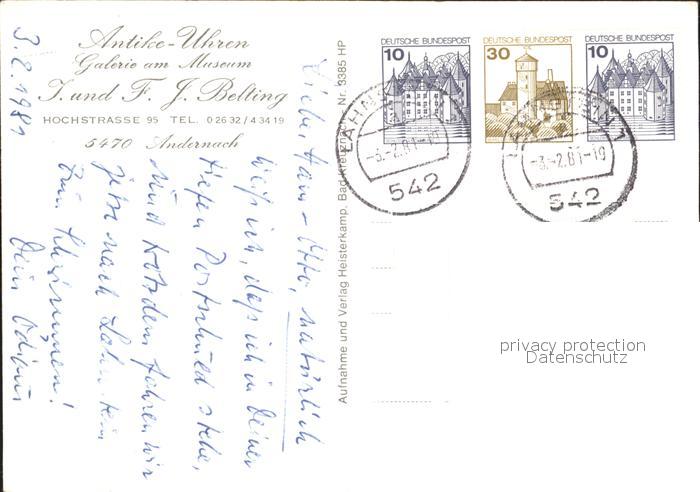 Antike-Uhren
Galerie am Museum
J. und F. J. Belting
HOCHSTRASSE 95 TEL. 0 26 32 / 4 34 19
5470 Andernach
3.2.1981
Lieber Hans-Otto, natürlich
weiß ich, daß ich in Deiner
tiefen Postschuld stehe,
und trotzdem fahren wir
jetzt nach Lahnstein
zum Schwimmen!
Dein
Aufnahme und Verlag Heisterkamp, Bad Kreuznach Nr. 3385 HP
DEUTSCHE BUNDESPOST
10
DEUTSCHE BUNDESPOST
30
DEUTSCHE BUNDESPOST
10
LAHN
-3.-2.81-19
542
1
-3.-2.81-19
542
privacy protection
Datenschutz